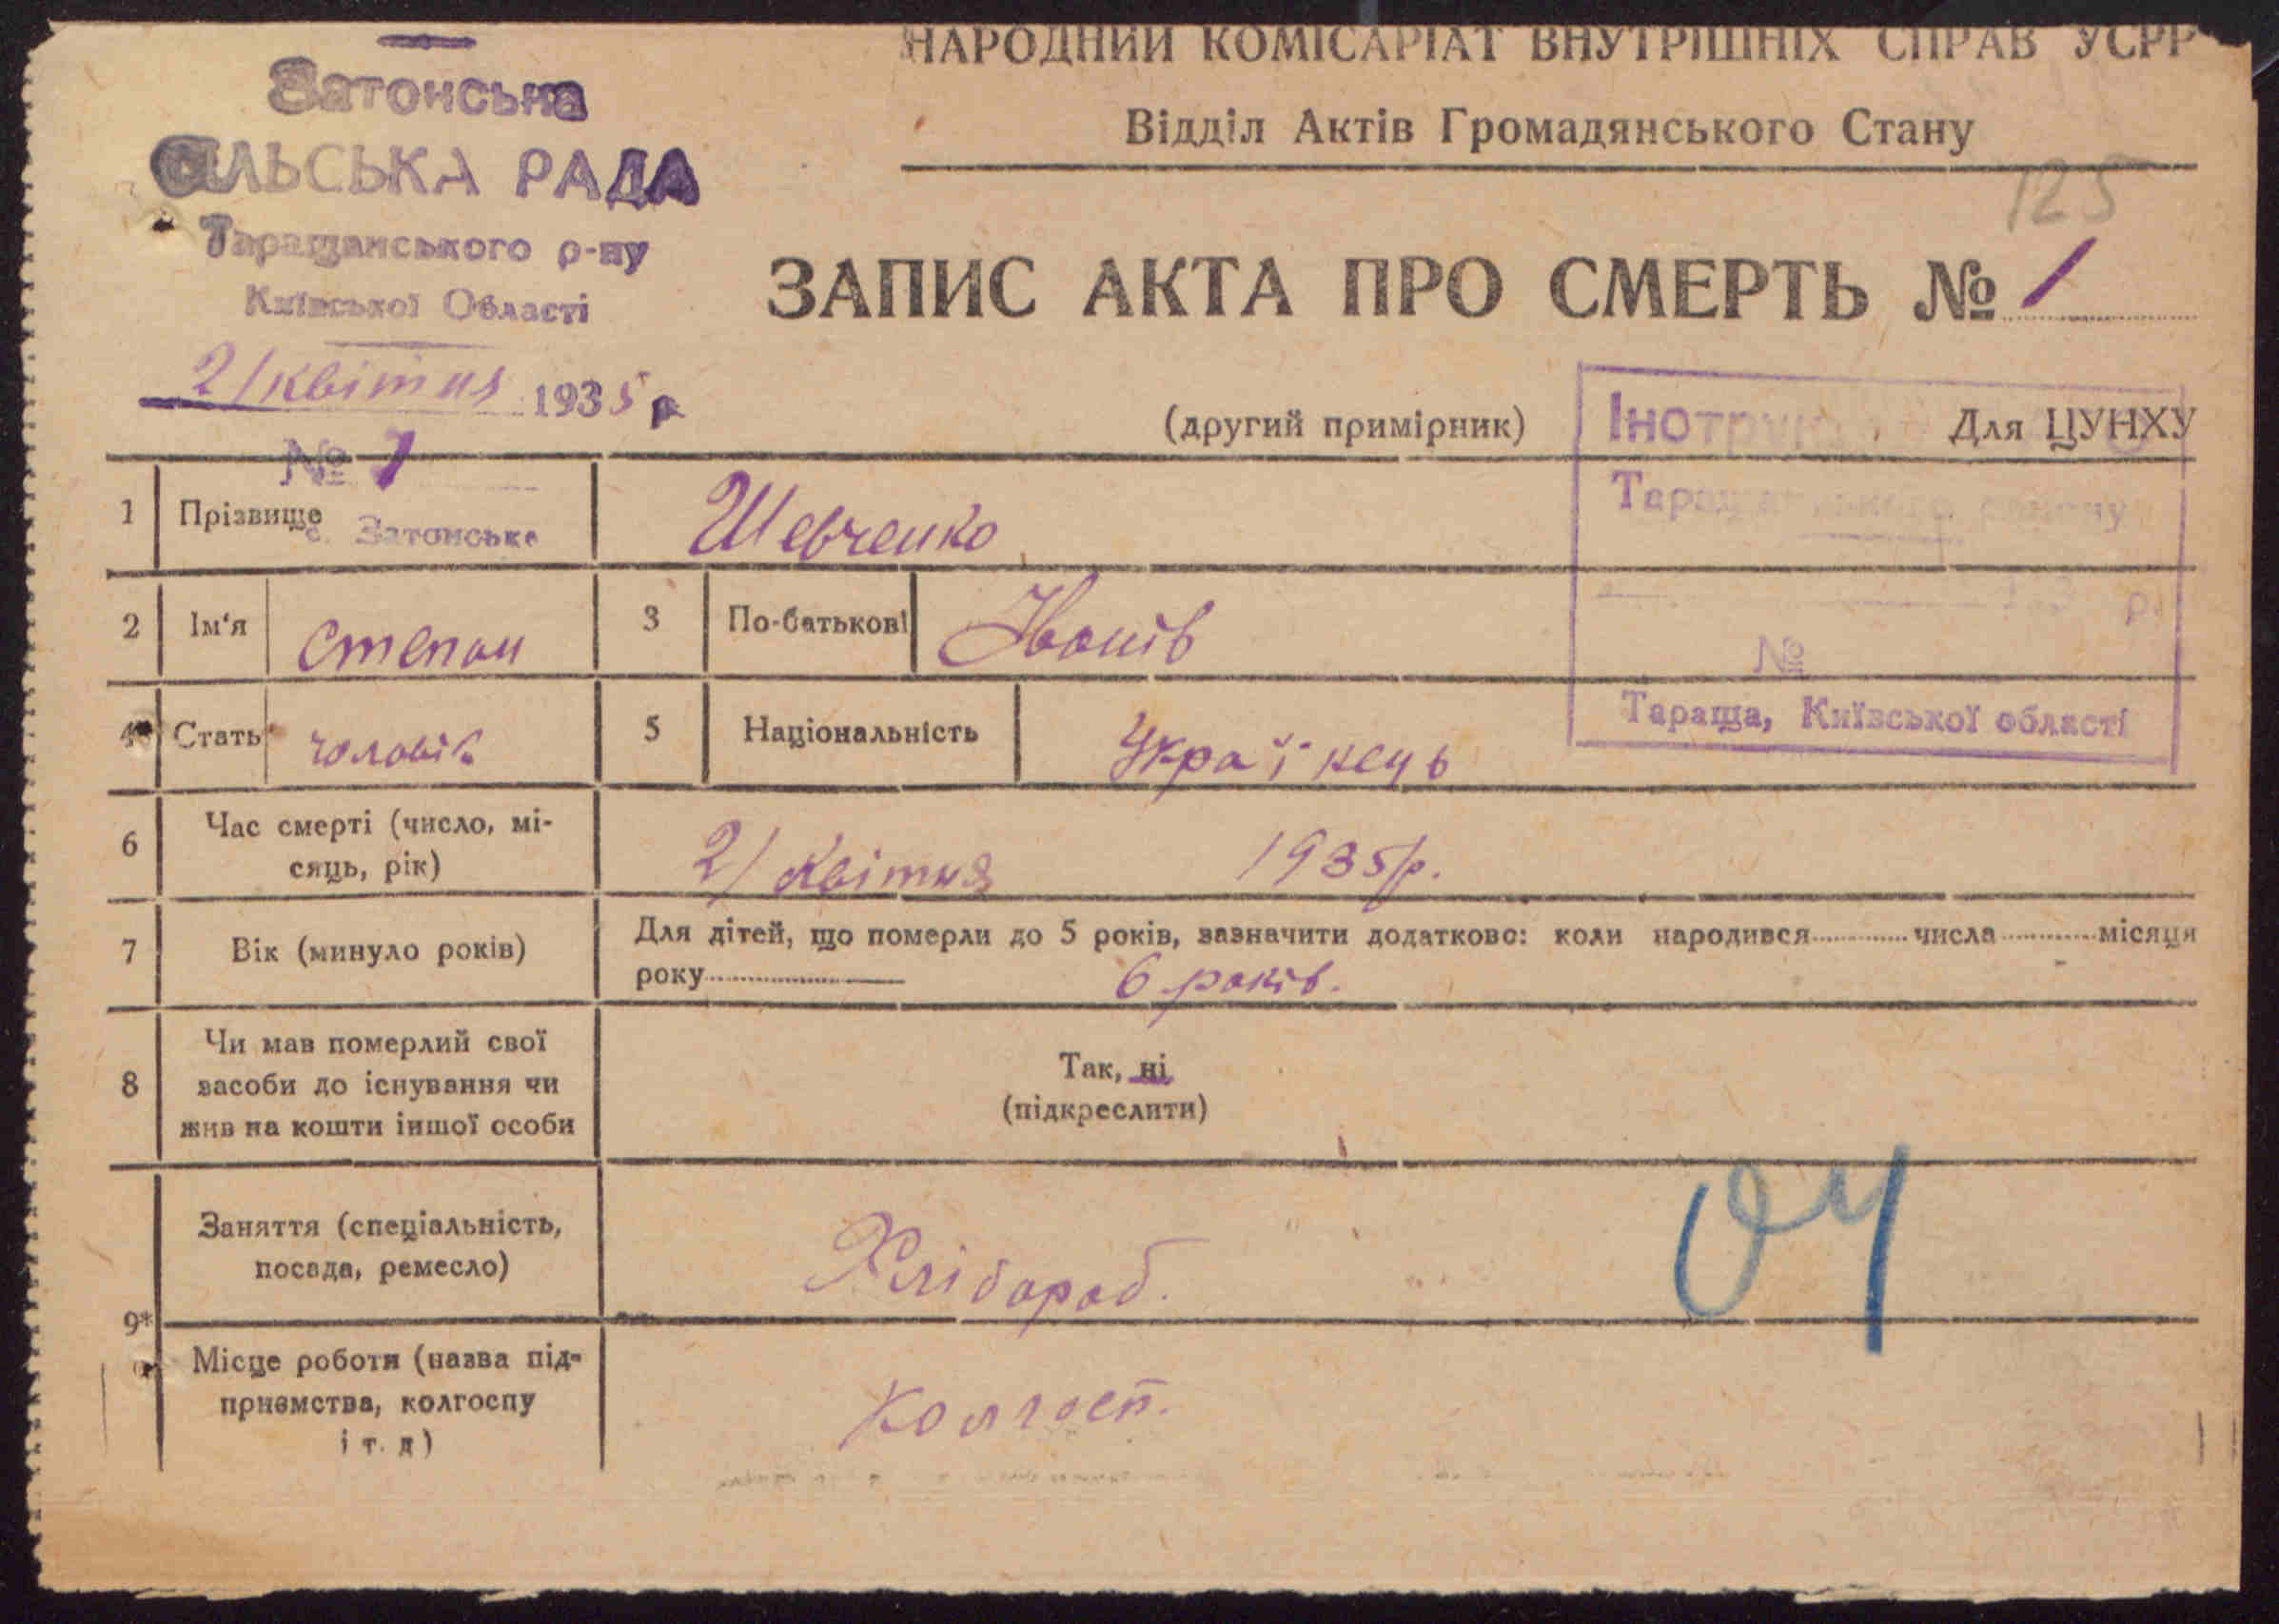 НАРОДНИЙ КОМІСАРІАТ ВНУТРІШНІХ СПРАВ УСРР
Відділ Актів Громадянського Стану
125
Затонська
СІЛЬСЬКА РАДА
Таращанського р-ну
Київської Області
2/квітня 1935 р
№ 1
с. Затонське
ЗАПИС АКТА ПРО СМЕРТЬ № 1
(другий примірник)
Для ЦУНХУ
Тараща, Київської області
№
р.
1 Прізвище Шевченко
2 Ім'я Степан 3 По-батькові Іванів
4* Стать чоловік 5 Національність Украї нець
6 Час смерті (число, мі-
сяць, рік) 2/ квітня 1935р.
7 Вік (минуло років) Для дітей, що померли до 5 років, зазначити додатково: коли народився числа місяця
року 6 років.
8 Чи мав померлий свої
засоби до існування чи
жив на кошти іншої особи
Так, ні
(підкреслити)
9* Заняття (спеціальність,
посада, ремесло) Хлібороб.
04
Місце роботи (назва під-
приємства, колгоспу
і т. д) Колгосп.